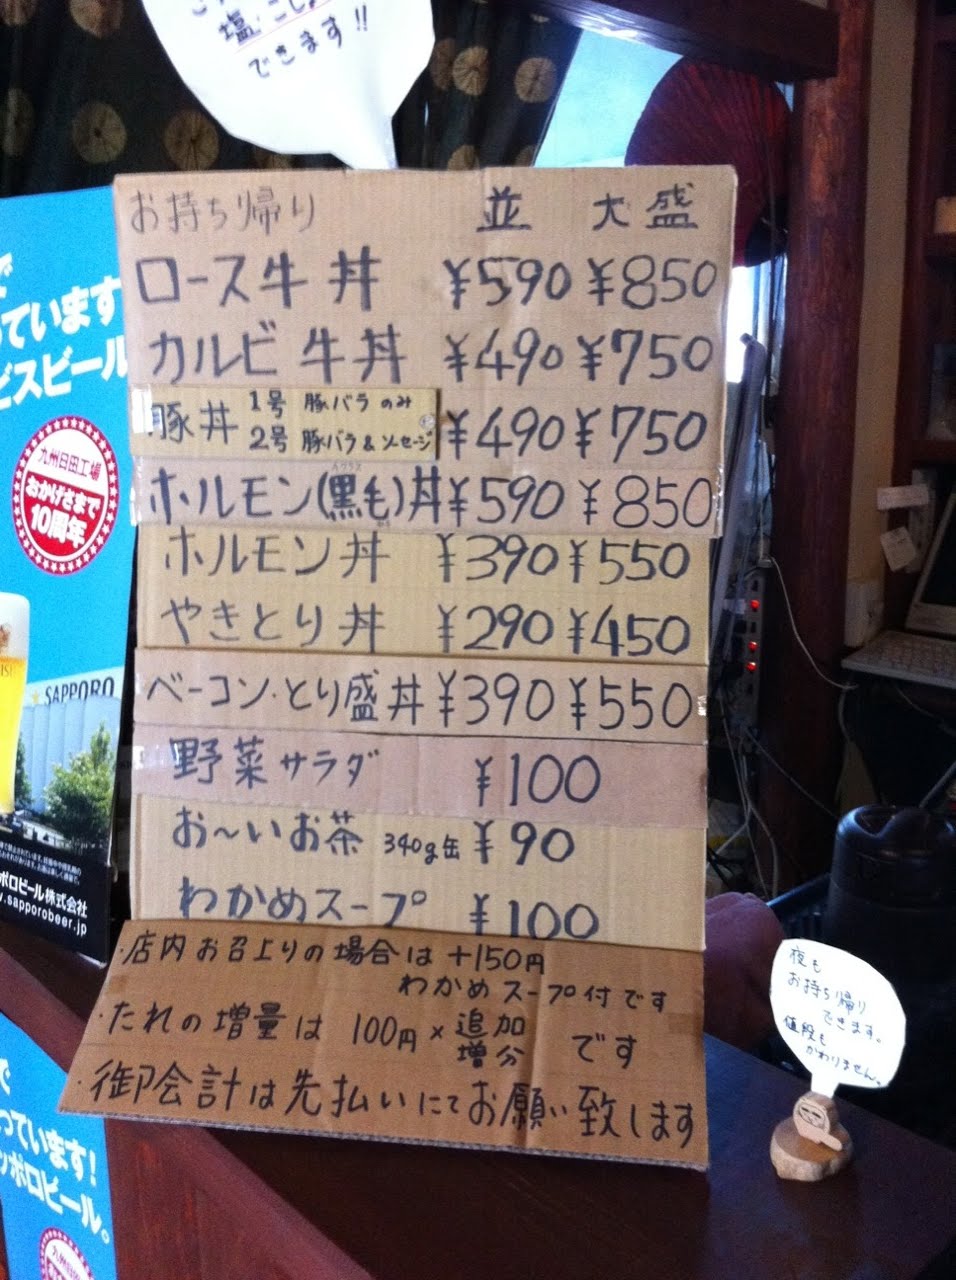 塩、こしょ
できます!!
お持ち帰り 並 大盛
ロース牛丼 ¥590 ¥850
カルビ牛丼 ¥490 ¥750
豚丼 1号 豚バラのみ ¥490 ¥750
2号 豚バラ&ソーセージ
ホルモン(黒毛)丼 ¥590 ¥850
ホルモン丼 ¥390 ¥550
やきとり丼 ¥290 ¥450
ベーコン・とり盛丼 ¥390 ¥550
野菜サラダ ¥100
お〜いお茶 340g缶 ¥90
わかめスープ ¥100
・店内お召上りの場合は+150円
わかめスープ付です
・たれの増量は 100円×追加増分 です
・御会計は先払いにてお願い致します
夜も
お持ち帰り
できます。
値段も
かわりません。
っています
ビスビール
九州日田工場
おかげさまで
10周年
SAPPORO
ポロビール株式会社
w.sapporobeer.jp
っています!
ッポロビール。
九州日田工場